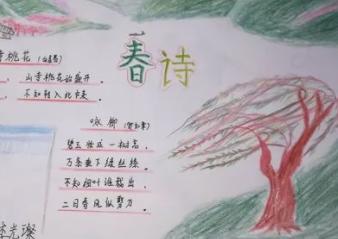 春诗
寺桃花 (白居易)
、山寺桃花始盛开
、不知转入此中来
咏柳 (贺知章)
碧玉妆成一树高，
万条垂下绿丝绦。
不知细叶谁裁出，
二月春风似剪刀。
光璨